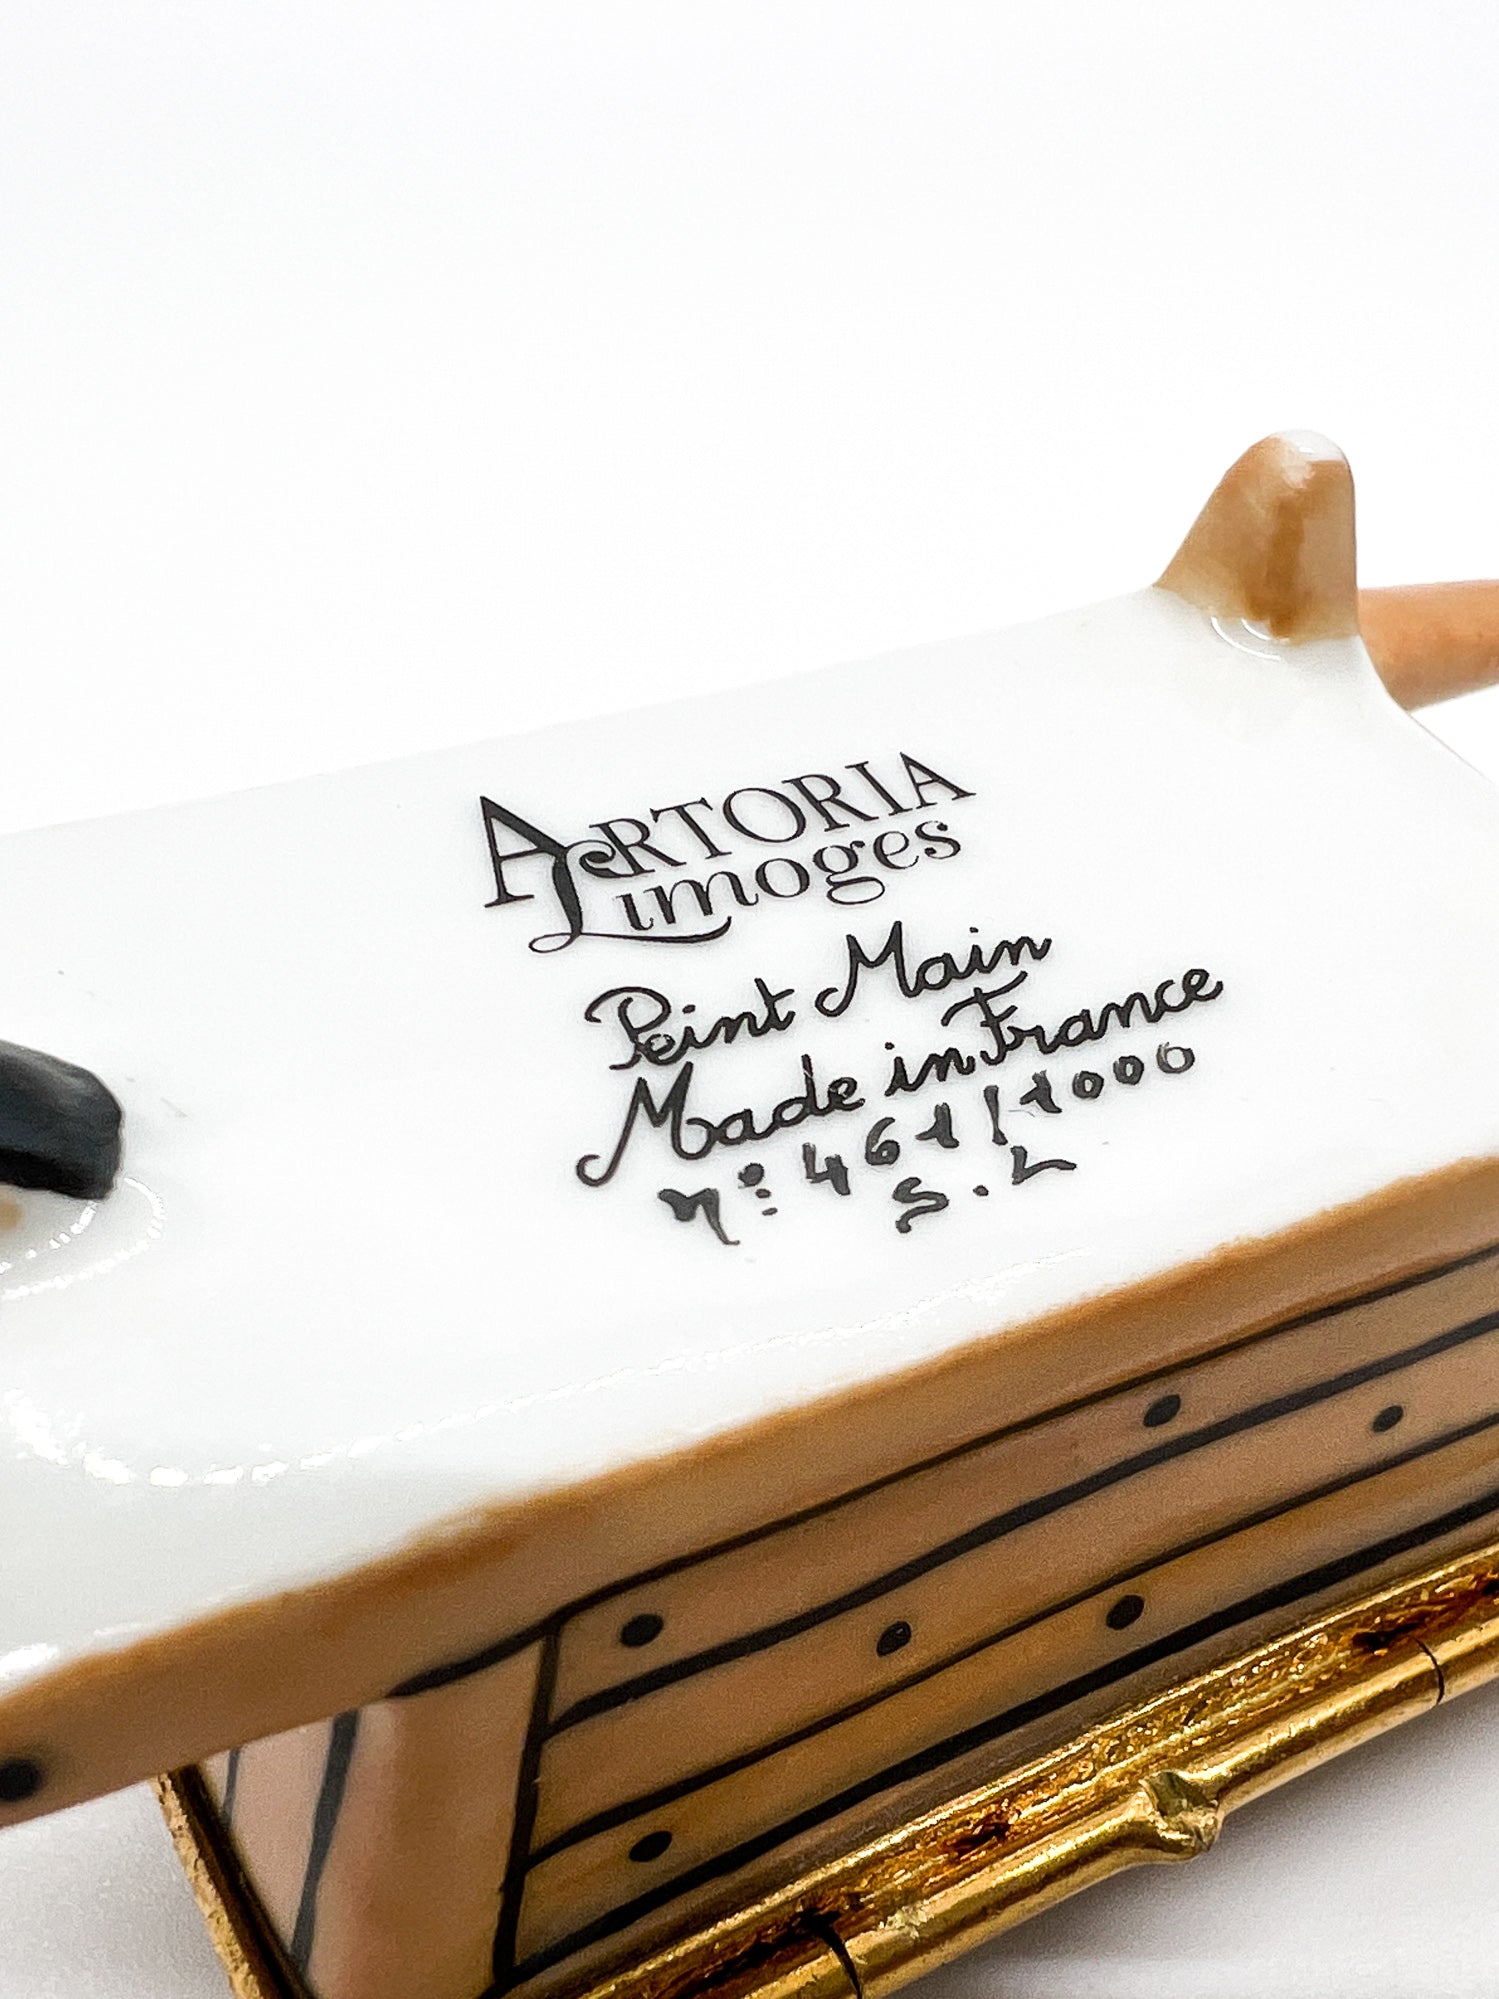 ARTORIA
Limoges
Peint Main
Made in France
n° 461/1000
S.L